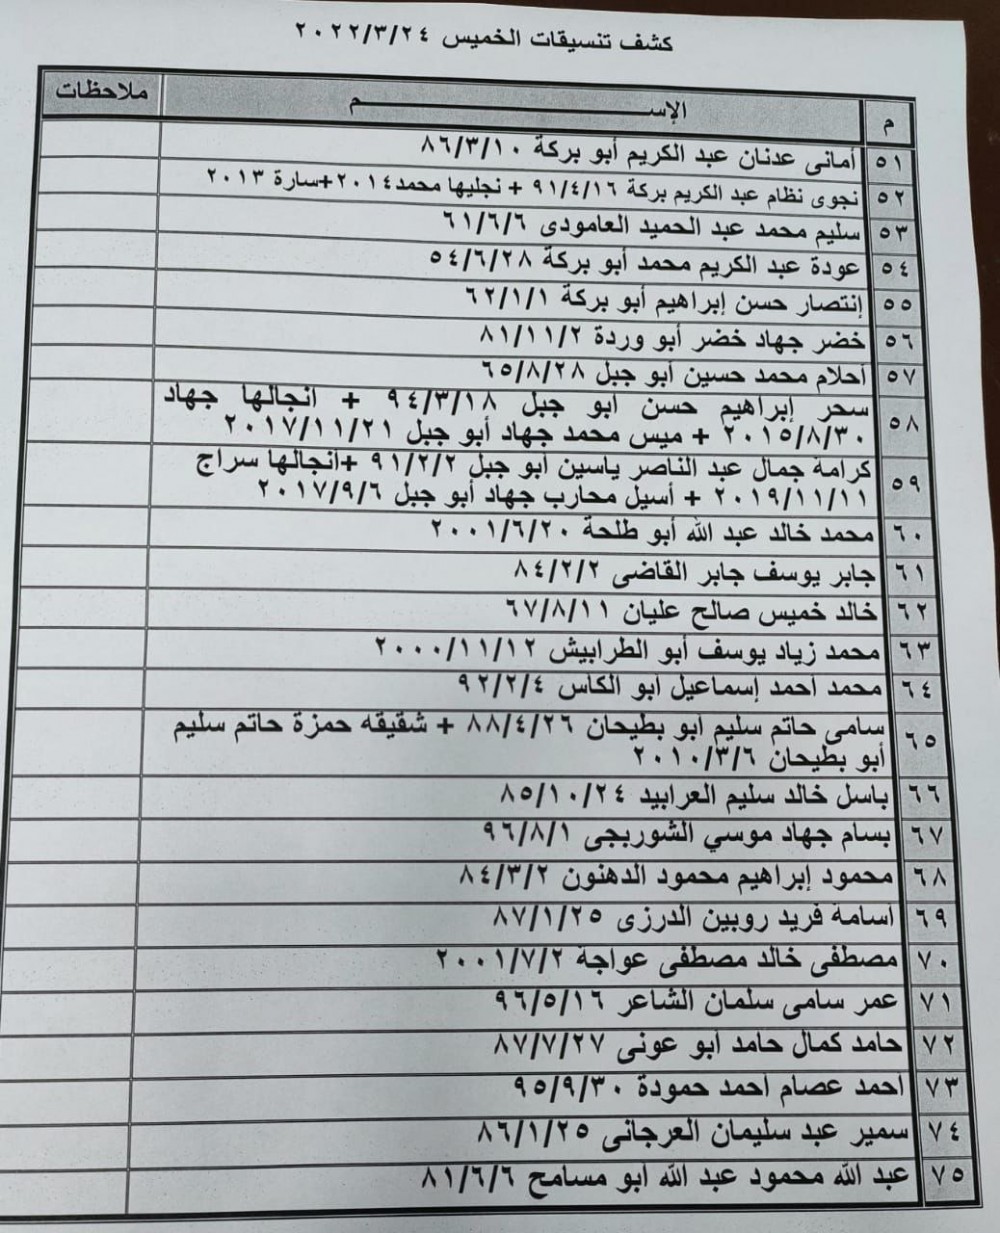 كشف تنسيقات الخميس ٢٠٢٢/٣/٢٤
م الإســـــم ملاحظات
٥١ أمانى عدنان عبد الكريم أبو بركة ٨٦/٣/١٠
٥٢ نجوى نظام عبد الكريم بركة ٩١/٤/١٦ + نجليها محمد٢٠١٤+سارة ٢٠١٣
٥٣ سليم محمد عبد الحميد العامودى ٦١/٦/٦
٥٤ عودة عبد الكريم محمد أبو بركة ٥٤/٦/٢٨
٥٥ إنتصار حسن إبراهيم أبو بركة ٦٢/١/١
٥٦ خضر جهاد خضر أبو وردة ٨١/١١/٢
٥٧ أحلام محمد حسين أبو جبل ٦٥/٨/٢٨
٥٨ سحر إبراهيم حسن ابو جبل ٩٤/٣/١٨ + انجالها جهاد
٢٠١٥/٨/٣٠ + ميس محمد جهاد أبو جبل ٢٠١٧/١١/٢١
٥٩ كرامة جمال عبد الناصر ياسين ابو جبل ٩١/٢/٢ +انجالها سراج
٢٠١٩/١١/١١ + أسيل محارب جهاد أبو جبل ٢٠١٧/٩/٦
٦٠ محمد خالد عبد الله أبو طلحة ٢٠٠١/٦/٢٠
٦١ جابر يوسف جابر القاضى ٨٤/٢/٢
٦٢ خالد خميس صالح عليان ٦٧/٨/١١
٦٣ محمد زياد يوسف أبو الطرابيش ٢٠٠٠/١١/١٢
٦٤ محمد احمد إسماعيل ابو الكاس ٩٢/٢/٤
٦٥ سامى حاتم سليم ابو بطيحان ٨٨/٤/٢٦ + شقيقه حمزة حاتم سليم
أبو بطيحان ٢٠١٠/٣/٦
٦٦ باسل خالد سليم العرابيد ٨٥/١٠/٢٤
٦٧ بسام جهاد موسي الشوربجى ٩٦/٨/١
٦٨ محمود إبراهيم محمود الدهنون ٨٤/٣/٢
٦٩ اسامة فريد روبين الدرزى ٨٧/١/٢٥
٧٠ مصطفى خالد مصطفى عواجة ٢٠٠١/٧/٢
٧١ عمر سامى سلمان الشاعر ٩٦/٥/١٦
٧٢ حامد كمال حامد ابو عونى ٨٧/٧/٢٧
٧٣ احمد عصام احمد حمودة ٩٥/٩/٣٠
٧٤ سمير عبد سليمان العرجانى ٨٦/١/٢٥
٧٥ عبد الله محمود عبد الله ابو مسامح ٨١/٦/٦